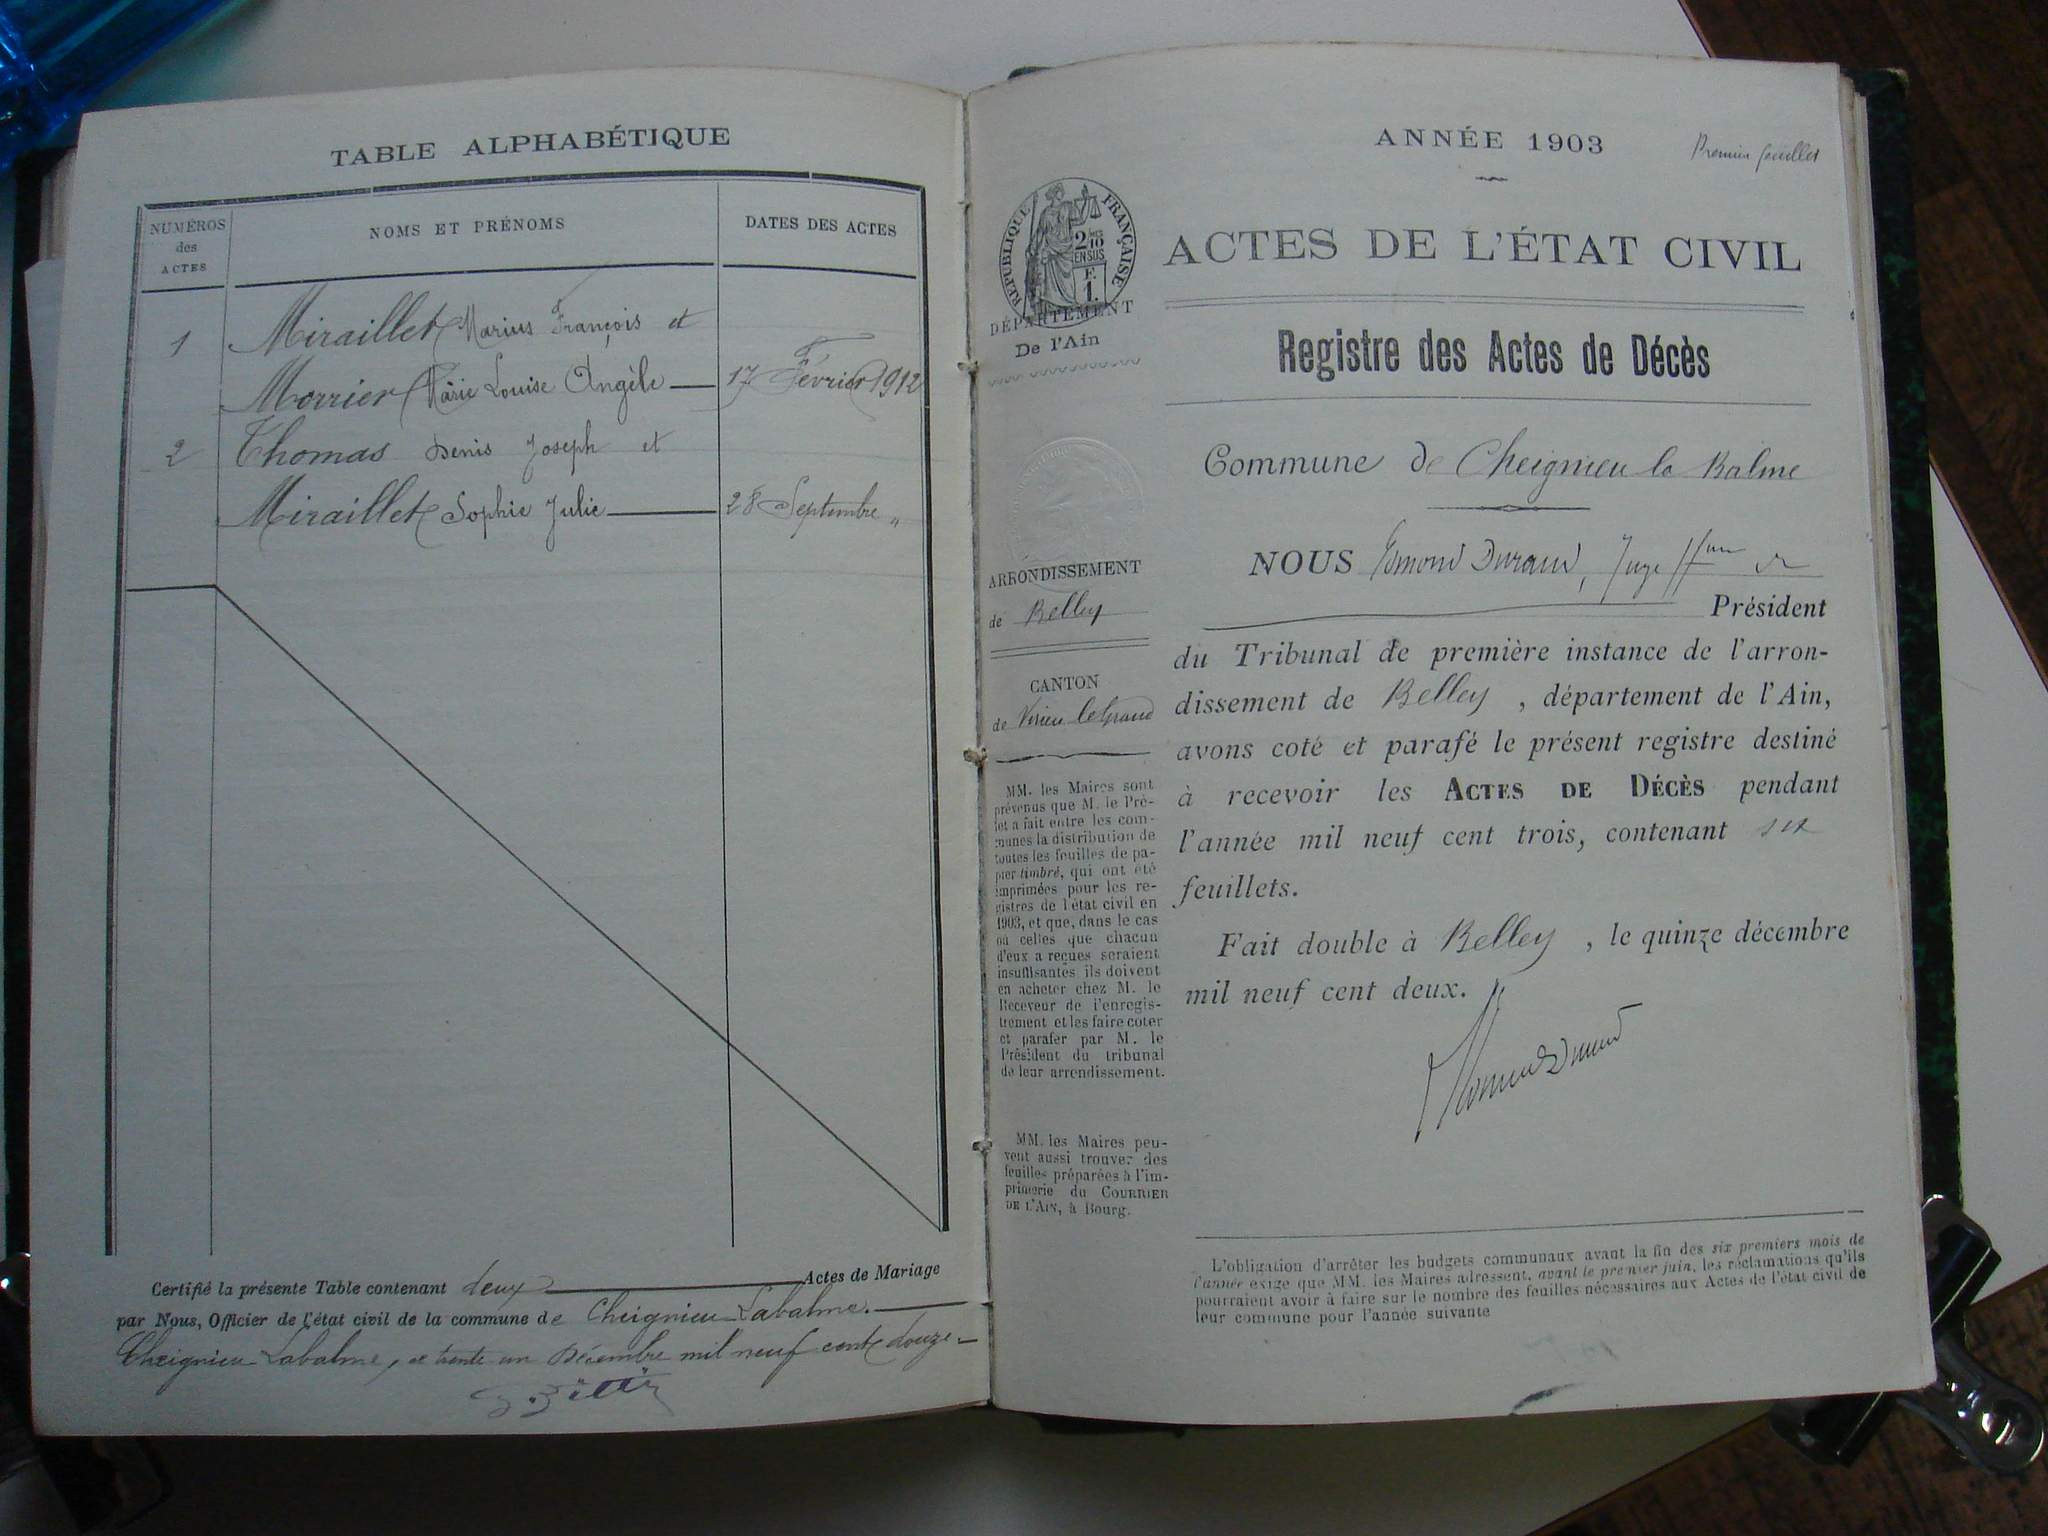 TABLE ALPHABÉTIQUE
NUMÉROS
des
ACTES
NOMS ET PRÉNOMS
DATES DES ACTES
1
Miraillet Marius François et
Morrier Marie Louise Angèle
17 Février 1912
2
Thomas Denis Joseph et
Miraillet Sophie Julie
28 Septembre "
Certifié la présente Table contenant deux Actes de Mariage
par Nous, Officier de l'état civil de la commune de Cheignieu-Labalme.
Cheignieu-Labalme, ce trente un Décembre mil neuf cent douze
ANNÉE 1903
Premier feuillet
RÉPUBLIQUE FRANÇAISE
2/10
EN SUS
F.
1.
DÉPARTEMENT
De l'Ain
ARRONDISSEMENT
de Belley
CANTON
de Virieu le Grand
MM. les Maires sont
prévenus que M. le Pré-
fet a fait entre les com-
munes la distribution de
toutes les feuilles de pa-
pier timbré, qui ont été
imprimées pour les re-
gistres de l'état civil en
1903, et que, dans le cas
où celles que chacun
d'eux a reçues seraient
insuffisantes ils doivent
en acheter chez M. le
Receveur de l'enregis-
trement et les faire coter
et parafer par M. le
Président du tribunal
de leur arrondissement.
MM. les Maires peu-
vent aussi trouver des
feuilles préparées à l'im-
primerie du COURRIER
DE L'AIN, à Bourg.
ACTES DE L'ÉTAT CIVIL
Registre des Actes de Décès
Commune de Cheignieu la Balme
NOUS Edmond Durand, Juge
Président
du Tribunal de première instance de l'arron-
dissement de Belley, département de l'Ain,
avons coté et parafé le présent registre destiné
à recevoir les ACTES DE DÉCÈS pendant
l'année mil neuf cent trois, contenant six
feuillets.
Fait double à Belley, le quinze décembre
mil neuf cent deux.
L'obligation d'arrêter les budgets communaux avant la fin des six premiers mois de
l'année exige que MM. les Maires adressent, avant le premier juin, les réclamations qu'ils
pourraient avoir à faire sur le nombre des feuilles nécessaires aux Actes de l'état civil de
leur commune pour l'année suivante